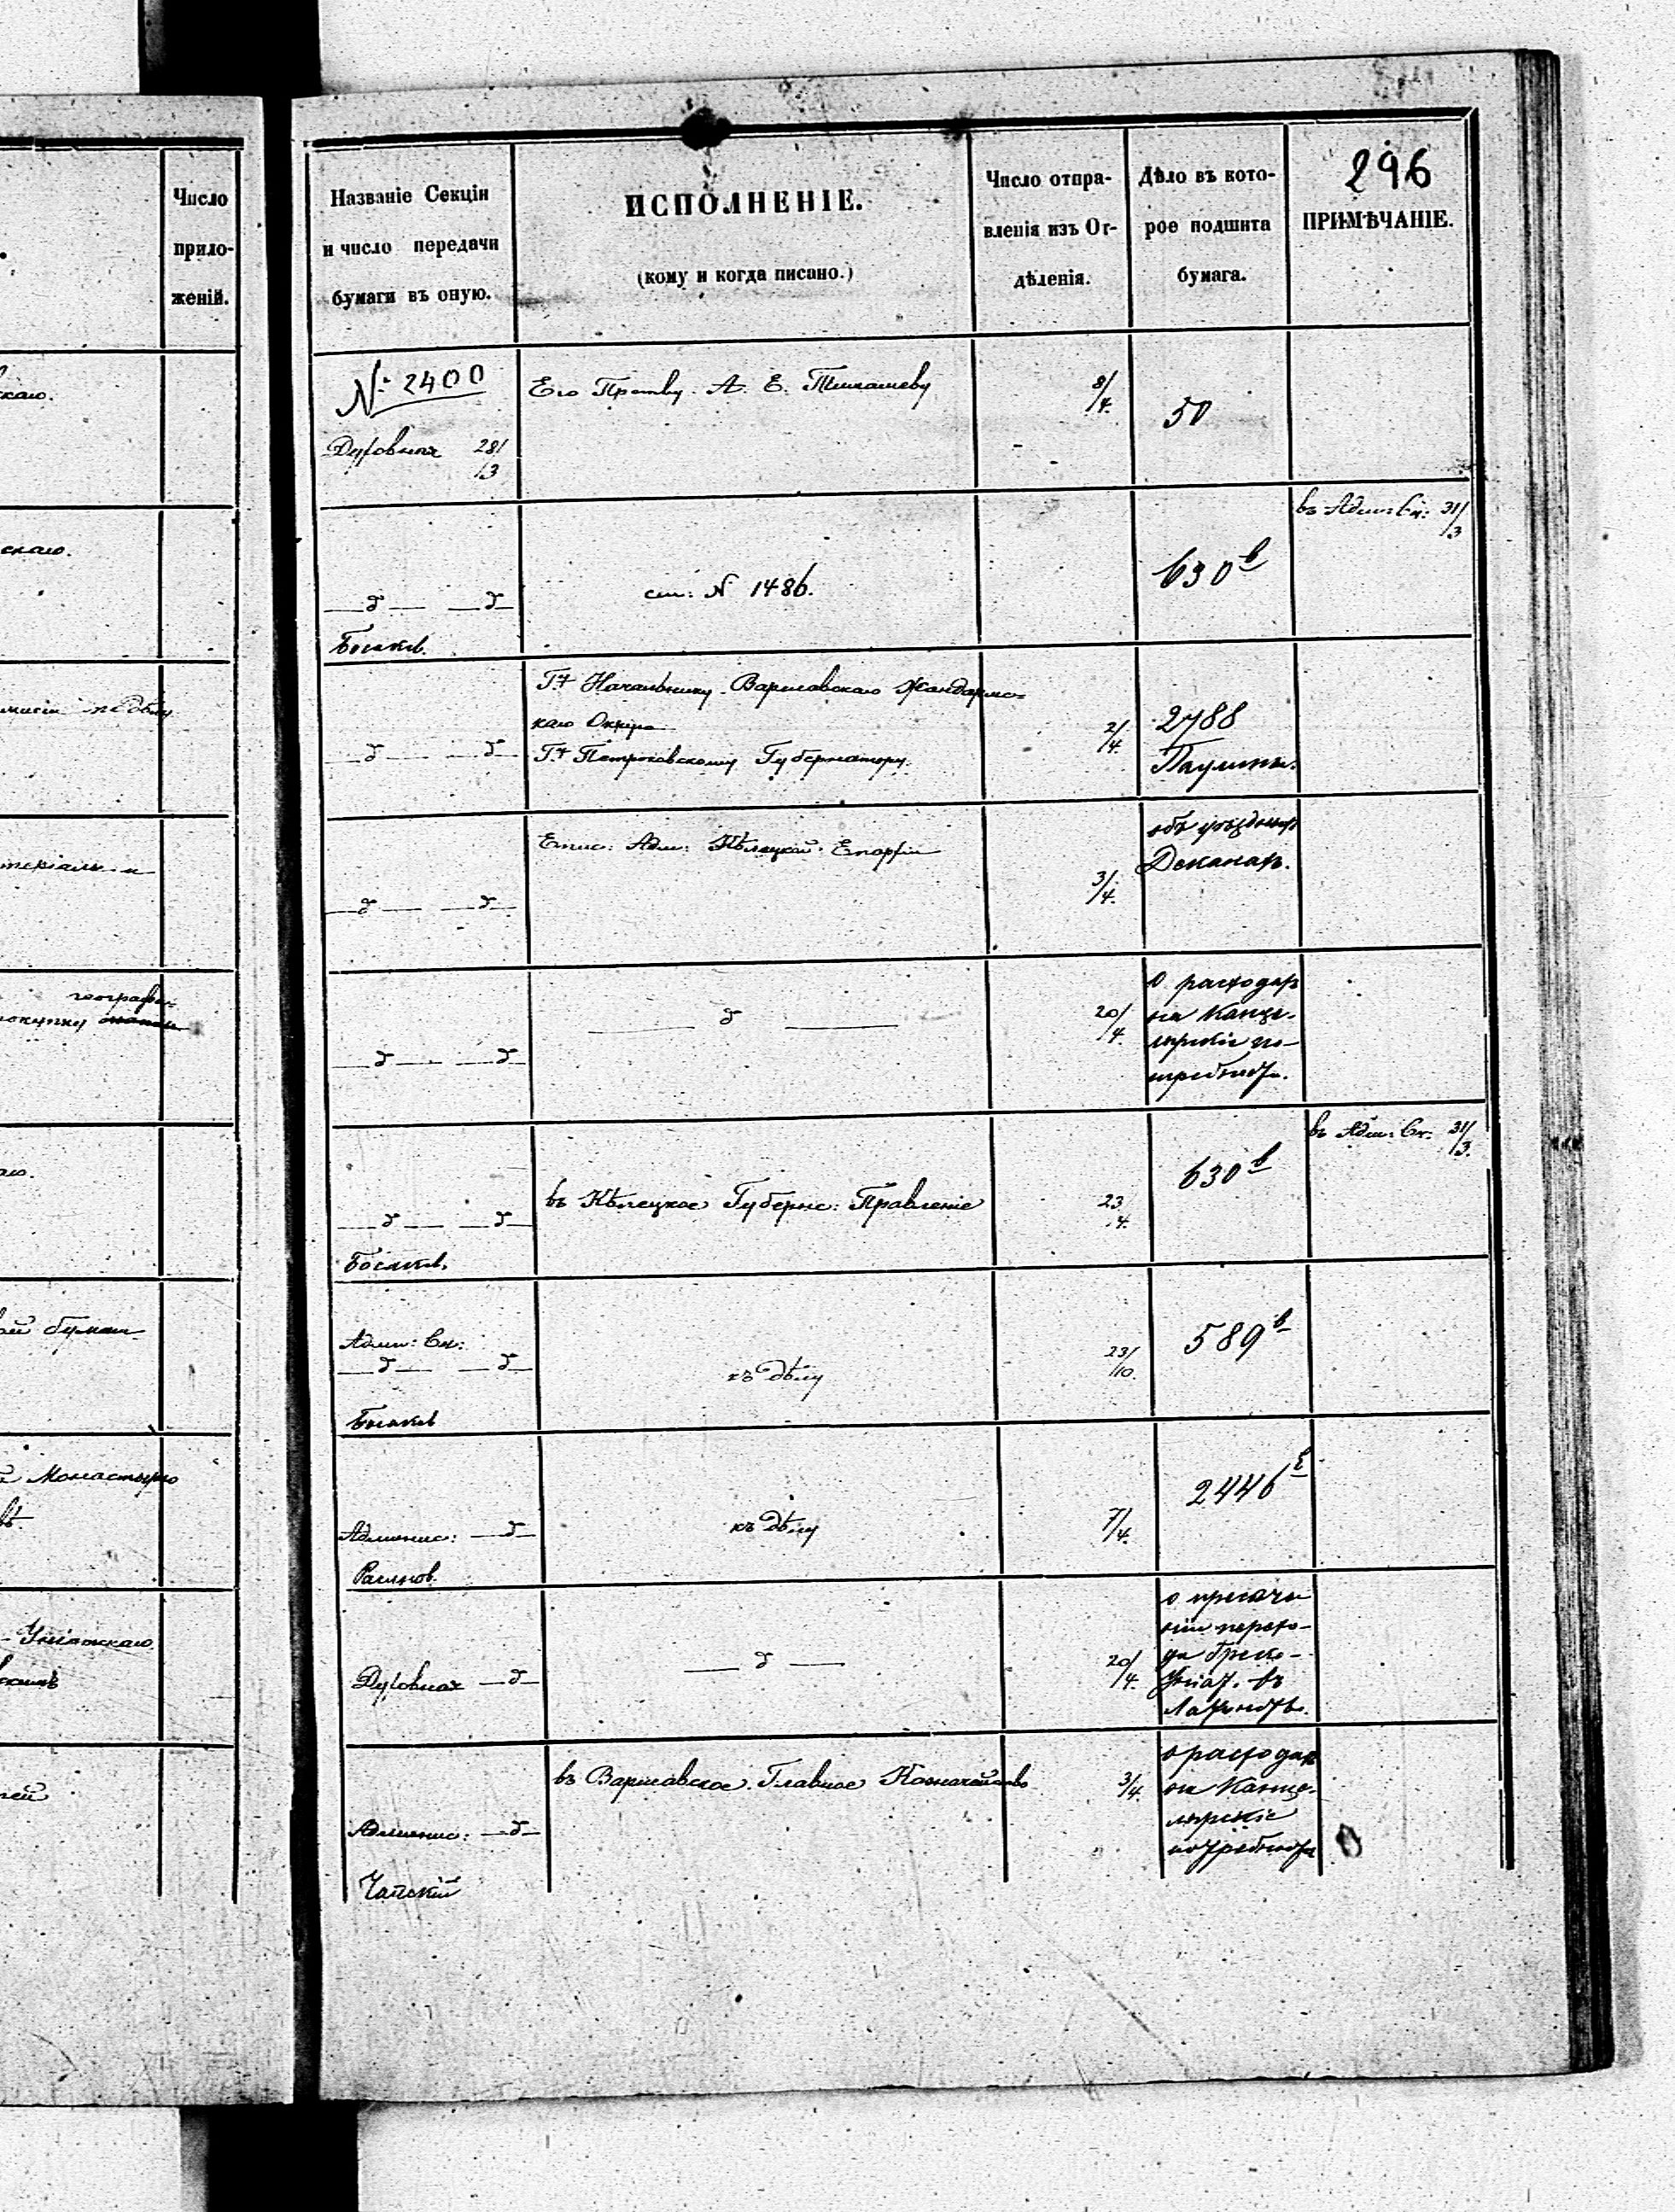 каго.
скаго.
по дѣлу
географи-
покупку
Монастырю
Уніатскаго
Число
прило-
женій.
296
Названіе Секціи
и число передачи
бумаги въ оную.
ИСПОЛНЕНІЕ.
(кому и когда писано.)
Число отпра-
вленія изъ От-
дѣленія.
Дѣло въ кото-
рое подшита
бумага.
ПРИМѢЧАНІЕ.
№ 2400
Духовная 28/3
Его Прству. А. Е. Тимашеву
8/4.
50
Босаков.
см: № 1486.
630 в
въ Адм: Ск: 31/3
Гну Начальнику Варшавскаго Жандармс-
каго Округа
Гну Петроковскому Губернатору.
2/4.
2788
Паулины.
Епис: Адм: Кѣлецкой Епархіи
3/4.
объ уѣздныхъ
Деканахъ.
— д —
20/4.
О расходахъ
на Канце-
лярскіе по-
требност.
Босаков.
въ Кѣлецкое Губернс: Правленіе
23/4.
630 в
въ Адм: Ск. 31/3.
Адми: Ск:
Босаков
къ дѣлу
23/10.
589 в
Админис: — д —
къ дѣлу
7/4.
2446
Духовная — д —
— д —
20/4.
о пресѣче
ніи перехо-
да Греко-
Уніат. въ
Латинств.
Админис: — д —
Чапскій
въ Варшавское Главное Казначейство
3/4.
о расходахъ
на Канце-
лярскіе
потребност